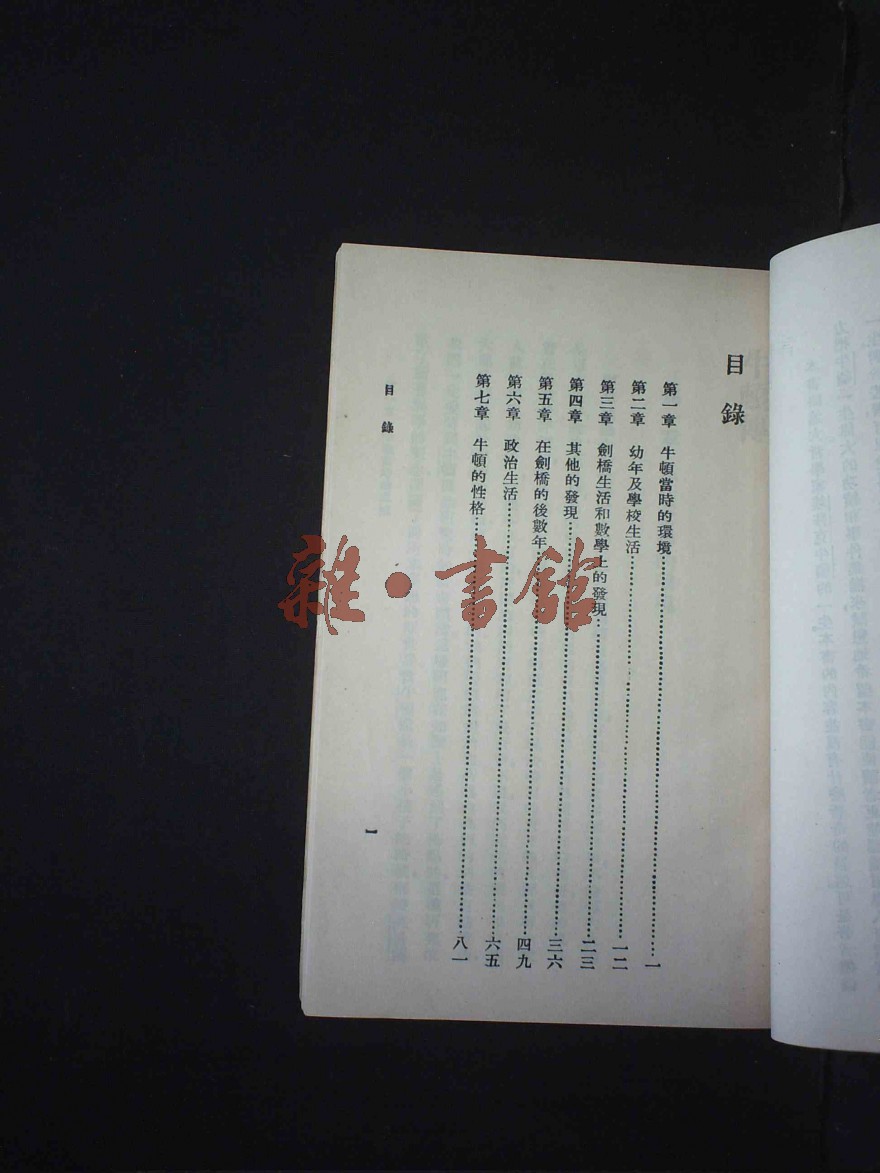 目錄
第一章　牛頓當時的環境…………一
第二章　幼年及學校生活…………一二
第三章　劍橋生活和數學上的發現…………二三
第四章　其他的發現…………三六
第五章　在劍橋的後數年…………四九
第六章　政治生活…………六五
第七章　牛頓的性格…………八一
目錄
一
雜·書館